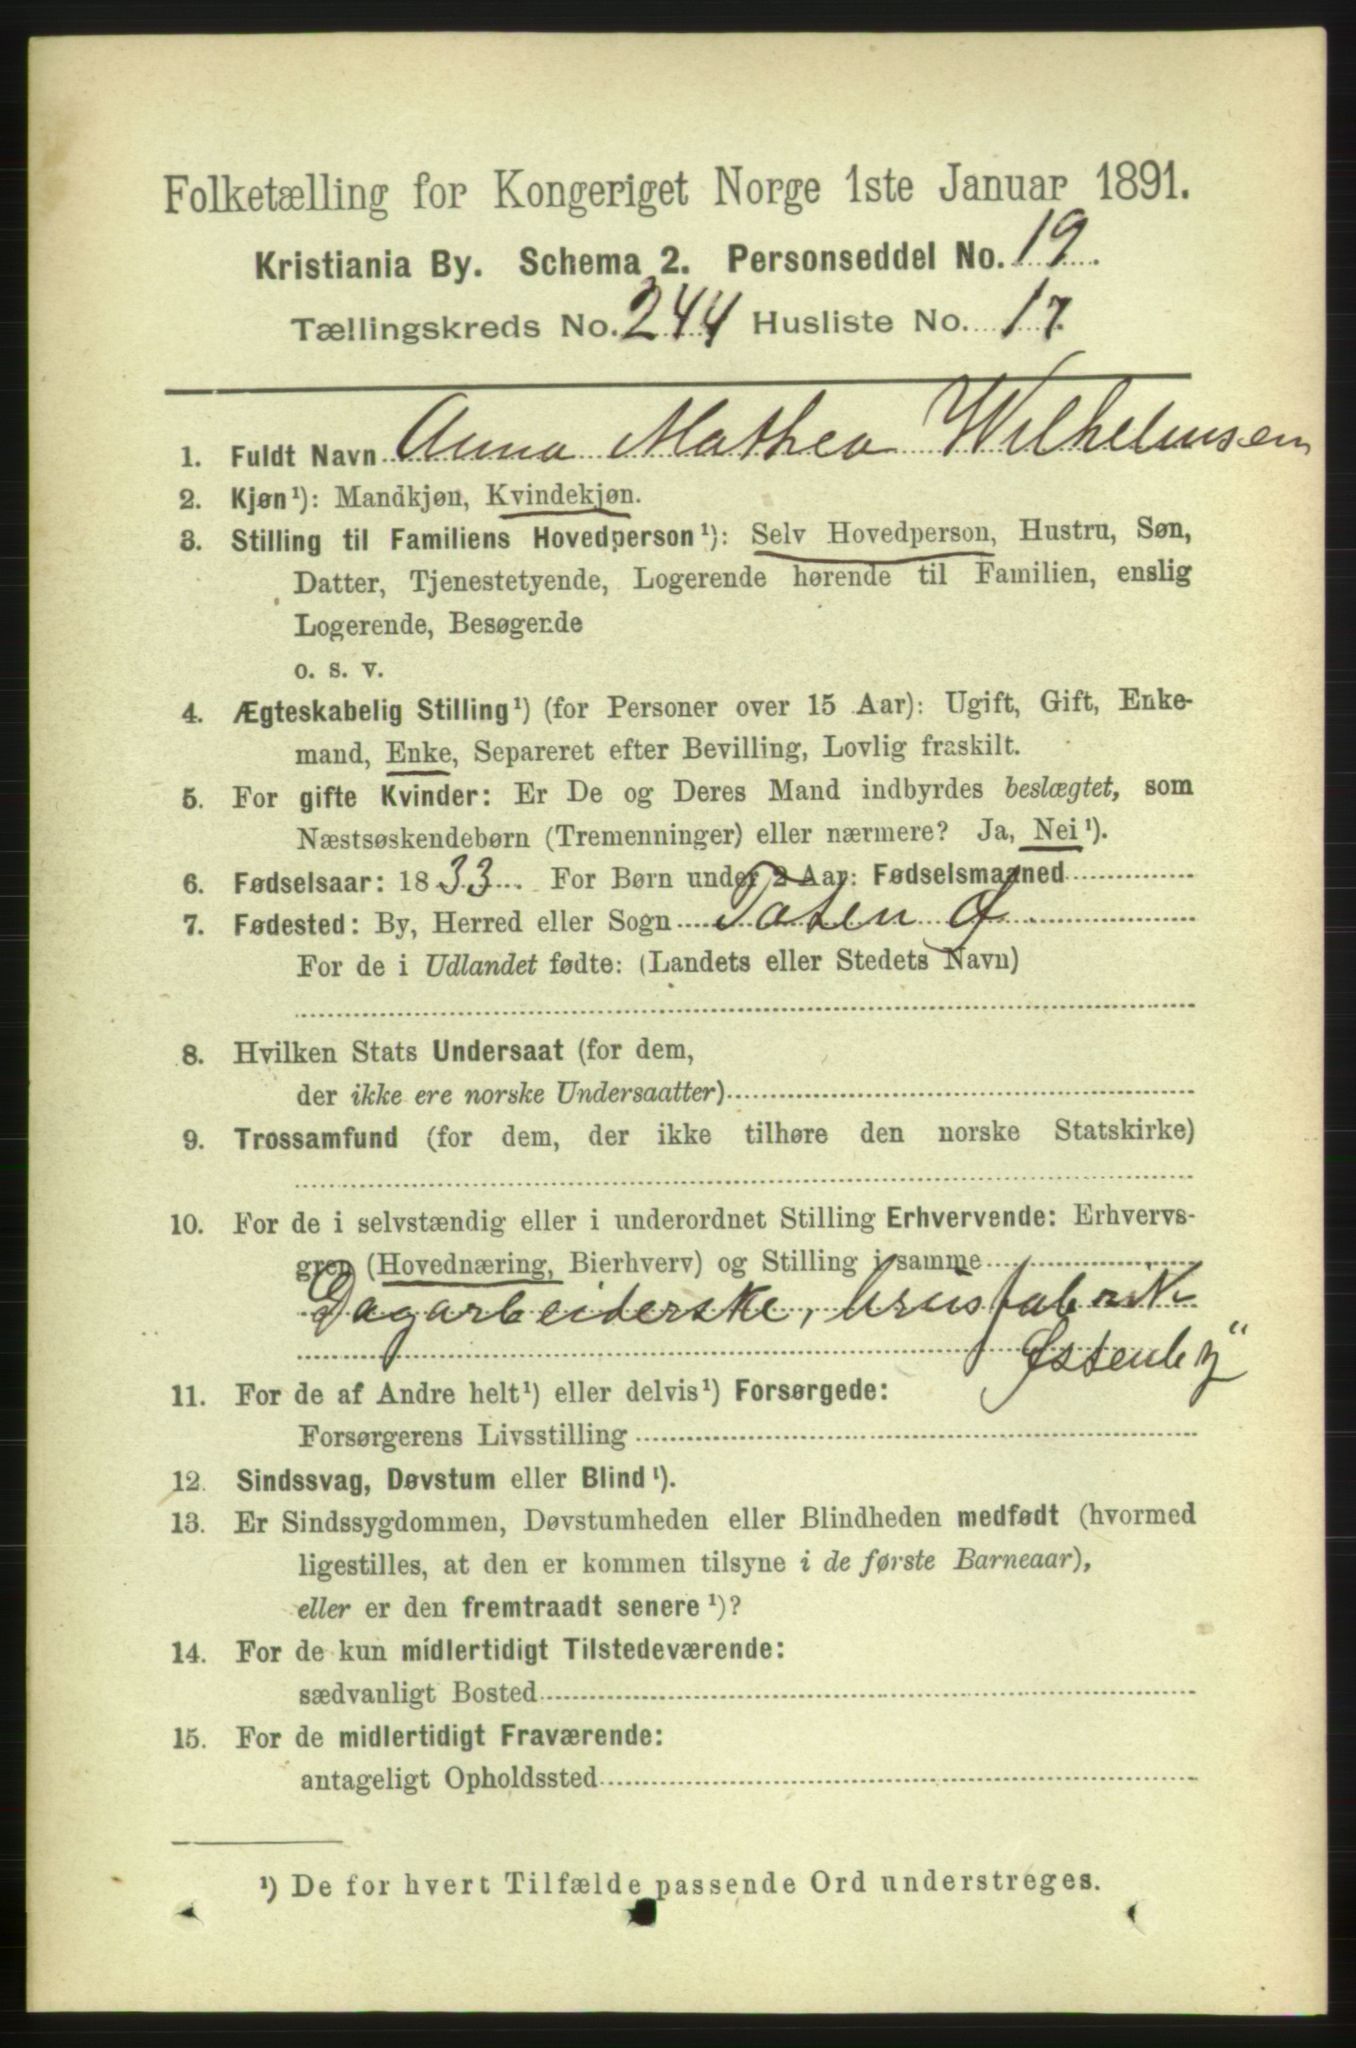 Folketælling for Kongeriget Norge 1ste Januar 1891.
Kristiania By. Schema 2. Personseddel No. 19.
Tællingskreds No. 244 Husliste No. 17.
1. Fuldt Navn Anna Mathea Wilhelmsen
2. Kjøn¹): Mandkjøn, Kvindekjøn.
3. Stilling til Familiens Hovedperson¹): Selv Hovedperson, Hustru, Søn,
Datter, Tjenestetyende, Logerende hørende til Familien, enslig
Logerende, Besøgende
o. s. v.
4. Ægteskabelig Stilling¹) (for Personer over 15 Aar): Ugift, Gift, Enke-
mand, Enke, Separeret efter Bevilling, Lovlig fraskilt.
5. For gifte Kvinder: Er De og Deres Mand indbyrdes beslægtet, som
Næstsøskendebørn (Tremenninger) eller nærmere? Ja, Nei¹).
6. Fødselsaar: 1833. For Børn under 2 Aar: Fødselsmaaned
7. Fødested: By, Herred eller Sogn Toten Ø
For de i Udlandet fødte: (Landets eller Stedets Navn)
8. Hvilken Stats Undersaat (for dem,
der ikke ere norske Undersaatter)
9. Trossamfund (for dem, der ikke tilhøre den norske Statskirke)
10. For de i selvstændig eller i underordnet Stilling Erhvervende: Erhvervs-
gren (Hovednæring, Bierhverv) og Stilling i samme
Dagarbeiderske,
Østenby"
11. For de af Andre helt¹) eller delvis¹) Forsørgede:
Forsørgerens Livsstilling
12. Sindssvag, Døvstum eller Blind¹).
13. Er Sindssygdommen, Døvstumheden eller Blindheden medfødt (hvormed
ligestilles, at den er kommen tilsyne i de første Barneaar),
eller er den fremtraadt senere¹)?
14. For de kun midlertidigt Tilstedeværende:
sædvanligt Bosted
15. For de midlertidigt Fraværende:
antageligt Opholdssted
¹) De for hvert Tilfælde passende Ord understreges.